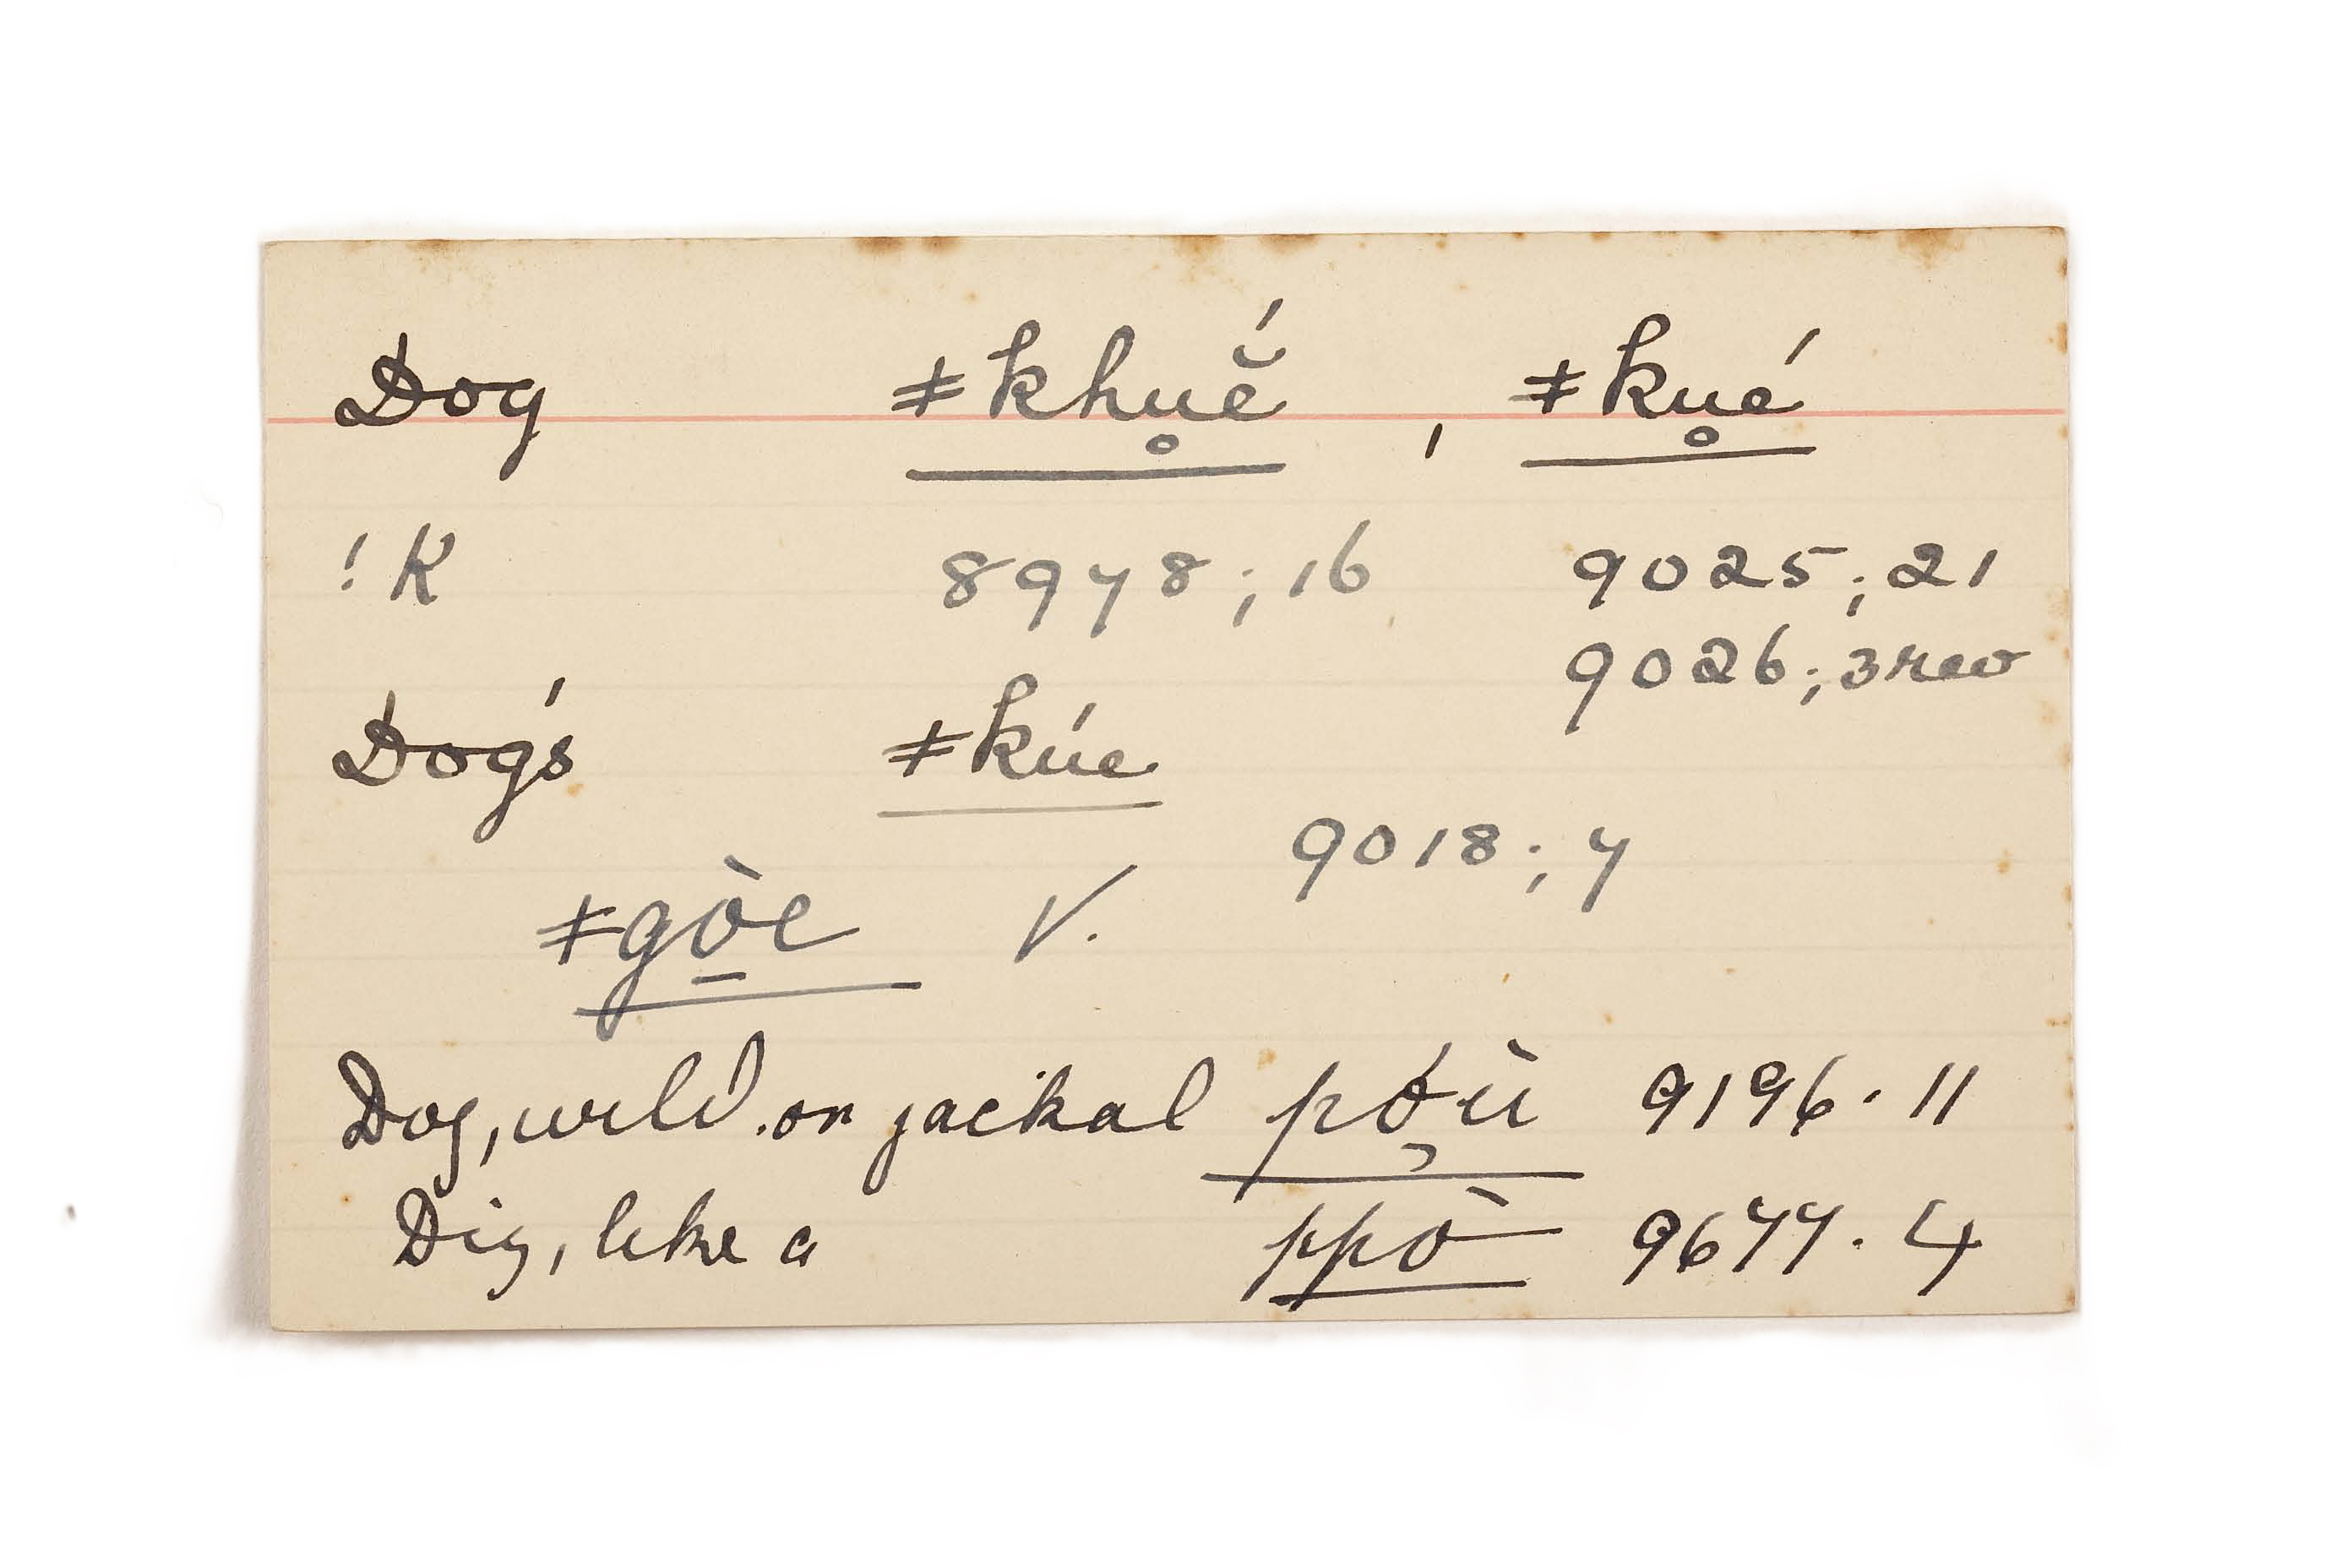 Dog ǂkhu̥ĕ́ , ǂku̥é
!K 8978; 16 9025; 21
9026; 3 rev
Dog's ǂkúe
9018; 7
ǂgò̠e V.
Dog, wild or jackal pọ́ù 9196. 11
Dig, like a ppò 9677. 4